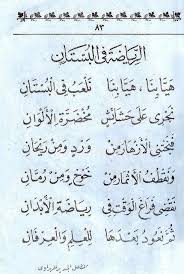 ٨٣
الرِّيَاضَةُ فِي الْبُسْتَانِ
هَيَّا بِنَا، هَيَّا بِنَا نَلْعَبُ فِي الْبُسْتَانِ
نَجْرِي عَلَى حَشَائِشَ مُخْضَرَّةِ الْأَلْوَانِ
فَنَجْتَنِي الْأَزْهَارَ مِنْ وَرْدٍ وَمِنْ رَيْحَانِ
وَنَقْطِفُ الْأَثْمَارَ مِنْ خَوْخٍ وَمِنْ رُمَّانِ
نَقْضِي فَرَاغَ الْوَقْتِ فِي رِيَاضَةِ الْأَبْدَانِ
ثُمَّ نَعُودُ بَعْدَهَا لِلْعِلْمِ وَالْعِرْفَانِ